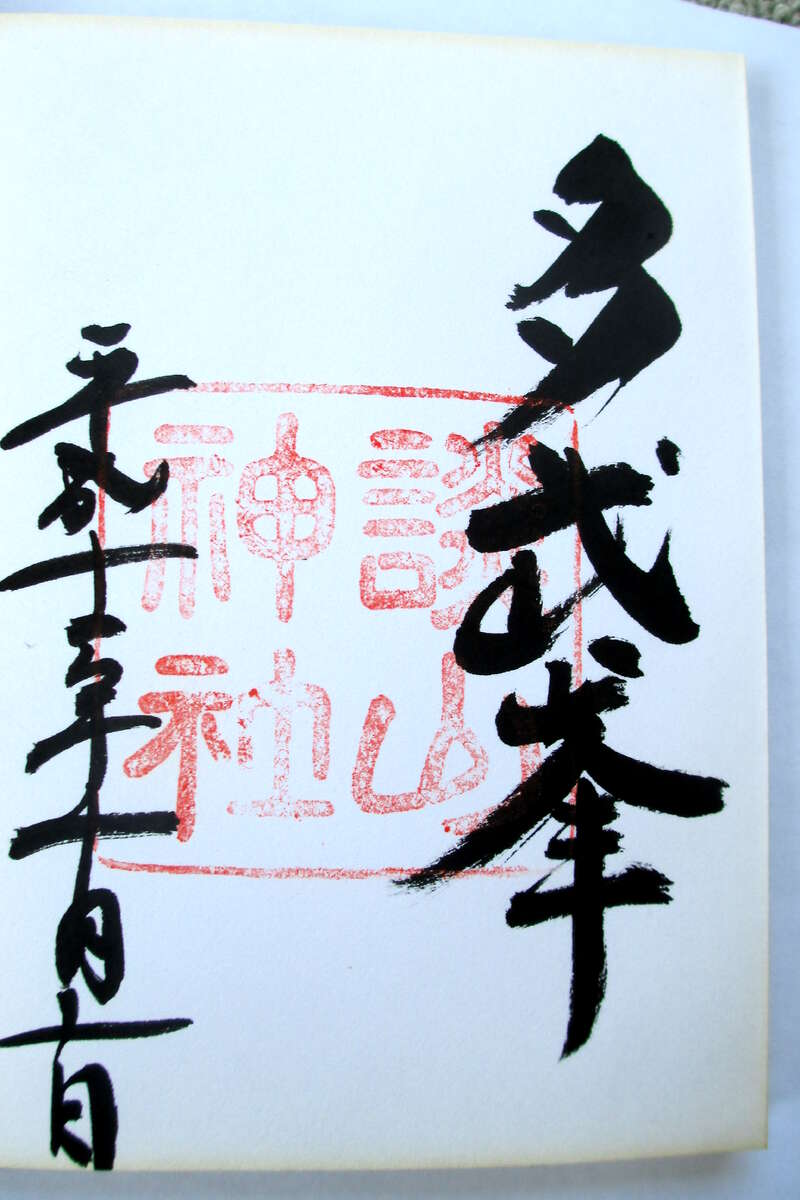 多武峯
談山
神社
平成十二年十月十日